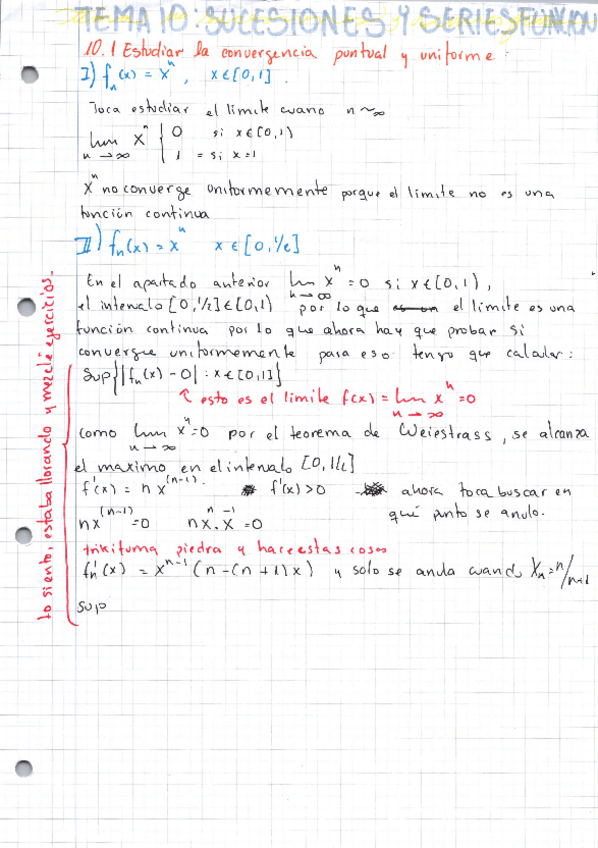 TEMA 10: SUCESIONES Y SERIES FUNCION
10.1 Estudiar la convergencia puntual y uniforme:
I) fₙ(x) = xⁿ, x∈[0,1].
Toca estudiar el limite cuano n~∞
lim n→∞ xⁿ { 0 si x∈[0,1)
1 = si x=1
xⁿ no converge uniformemente porque el limite no es una
función continua
II) fₙ(x) = xⁿ x∈[0,1/2]
En el apartado anterior lim n→∞ xⁿ = 0 si x∈[0,1),
el intervalo [0,1/2]∈[0,1) por lo que el límite es una
función continua por lo que ahora hay que probar si
convergue uniformemente para eso tengo que calcular:
Sup{|fₙ(x) - 0| : x∈[0,1]}
↑ esto es el limite f(x) = lim n→∞ xⁿ = 0
como lim n→∞ xⁿ = 0 por el teorema de Weiestrass, se alcanza
el maximo en el intervalo [0,1/2]
f'(x) = n x⁽ⁿ⁻¹⁾. f'(x) > 0 ahora toca buscar en
nx⁽ⁿ⁻¹⁾ = 0 nxⁿ.x⁻¹ = 0 qué punto se anula.
trikituma piedra y hace estas cosas
fₙ'(x) = xⁿ⁻¹(n-(n+1)x) y solo se anula cuando Xₙ = n/n+1
Sup
lo siento, estaba llorando y mezclé ejercicios.